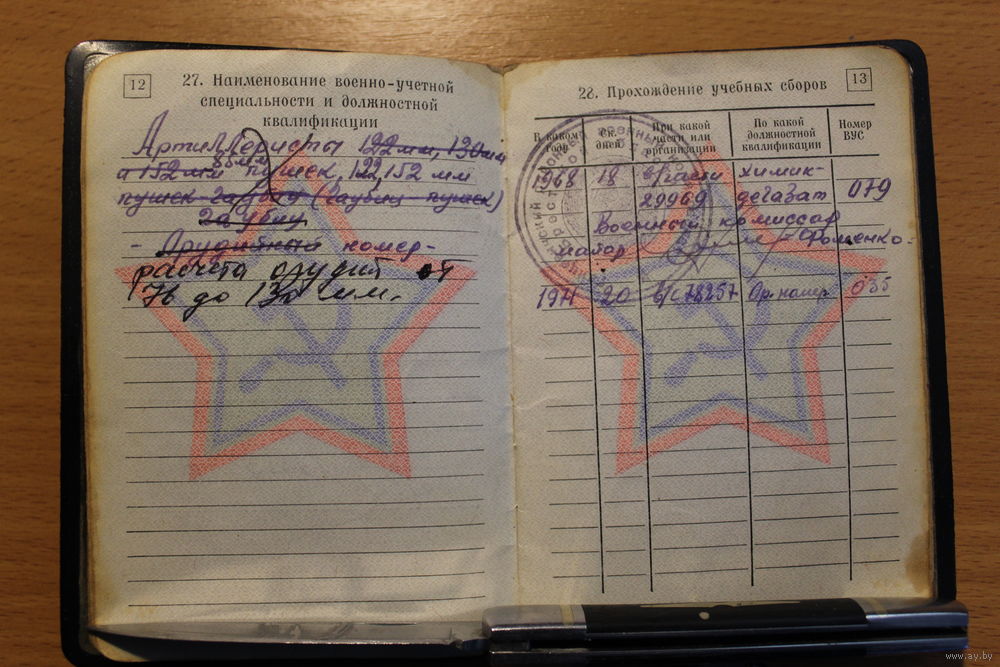 12
27. Наименование военно-учетной
специальности и должностной
квалификации
Артиллеристы 122мм, 130мм
85мм
и 152 мм пушек, 122, 152 мм
пушек (гаубиц - пушек)
- Орудийный номер-
расчёта орудий от
76 до 130 мм.
13
28. Прохождение учебных сборов
В каком году
Ск. дней
При какой части или организации
По какой должностной квалификации
Номер ВУС
1968 18 в/части химик-
29969 дегазат 079
Военный комиссар
майор Фоменко
1971 20 в/ч 78257 Ор. номер 035
www.ay.by